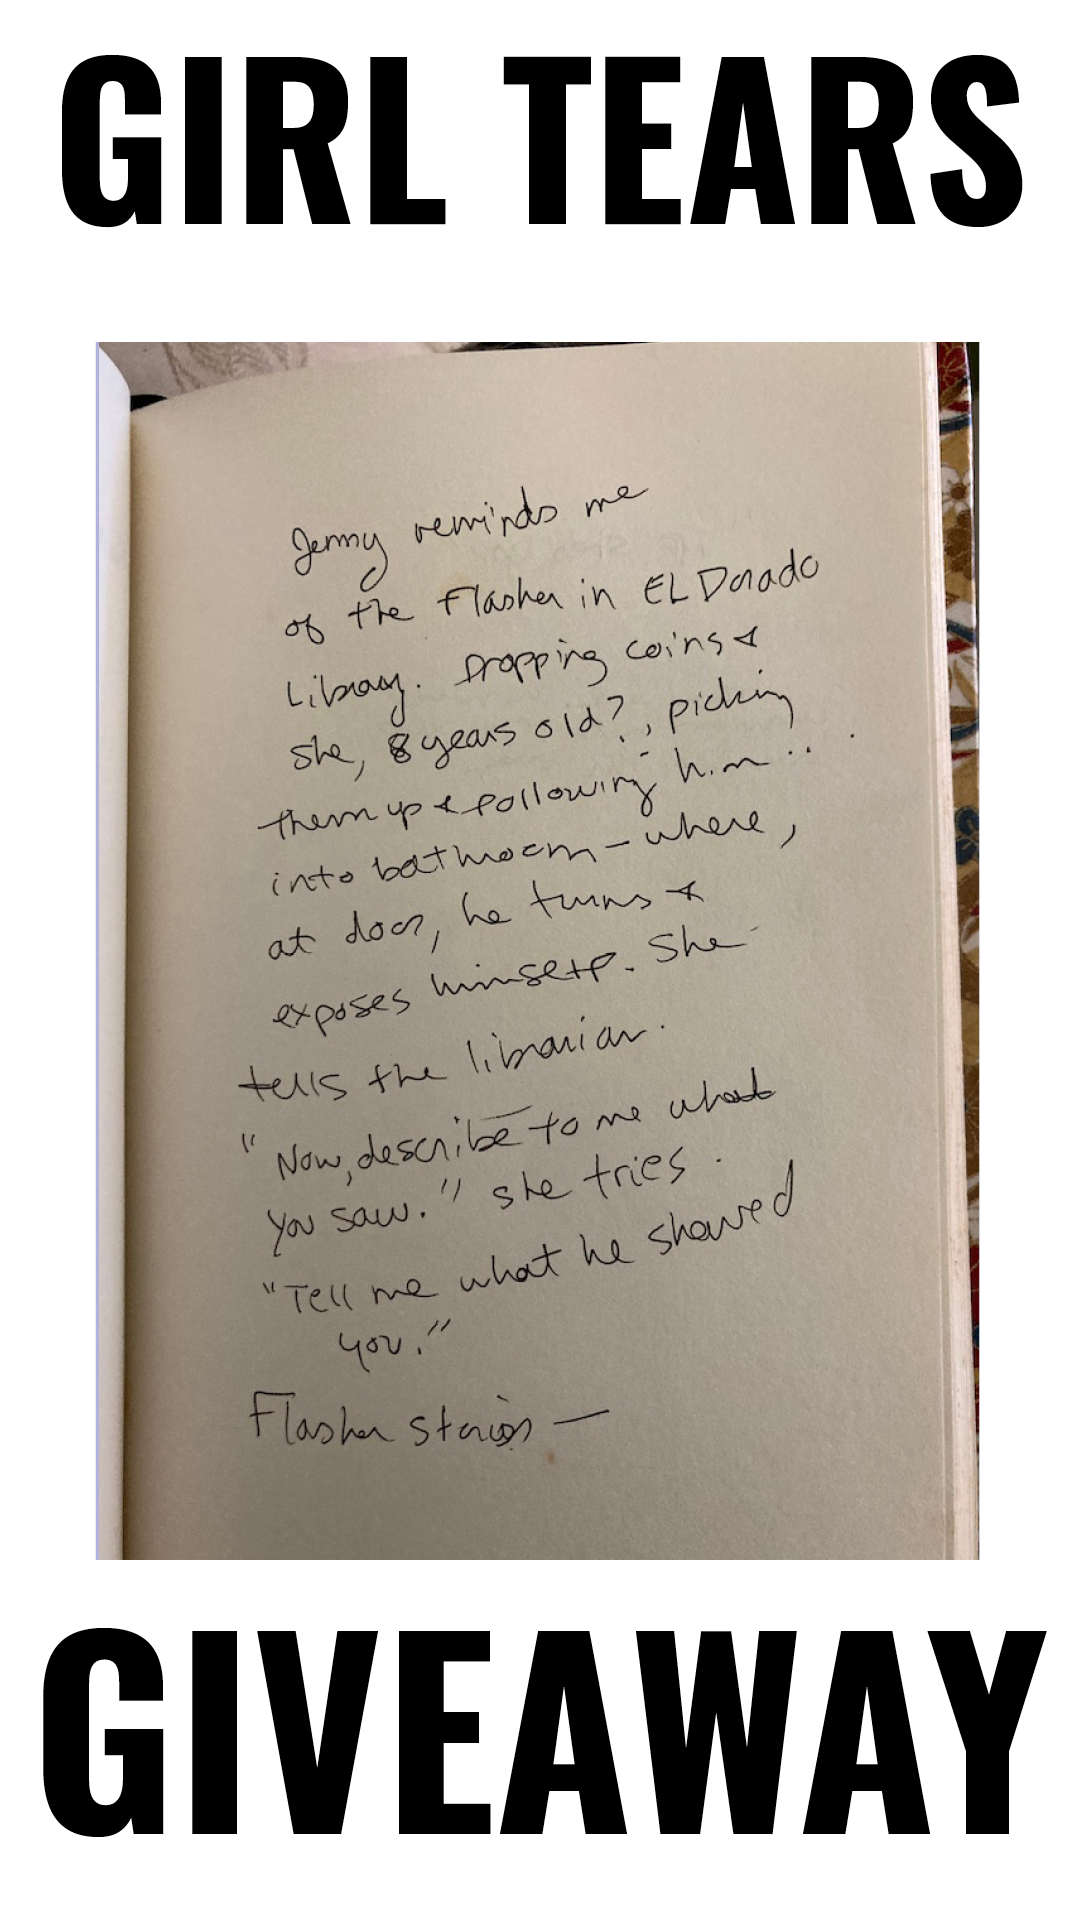 GIRL TEARS
Jenny reminds me
of the Flasher in EL Dorado
Library. Dropping coins &
she, 8 years old?, picking
them up & following him...
into bathroom – where,
at door, he turns &
exposes himself. She
tells the librarian.
"Now, describe to me what
you saw." she tries.
"Tell me what he showed
you."
Flasher stories —
GIVEAWAY